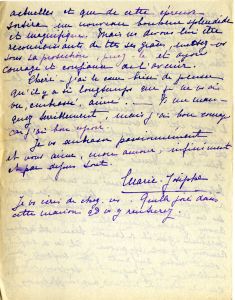 actuelles et que de cette épreuve
sortira un nouveau bonheur splendide
et magnifique. Mais ns devons être
reconnaissants de ttes ses grâces, mettez-vs
sous Sa protection, priez le et ayons
courage et confiance de l'avenir.
Chéri - j'ai le cœur bien de penser
qu'il y a si longtemps que je ne vs ai
vu, embrassé, aimé .... Vs me man-
quez brutalement, mais j'ai bon courage
car j'ai bon espoir.
Je vs embrasse passionnément
et vous aime, mon amour, infiniment
et par dessus tout.
Marie-Josèphe
Je vs écris de chez vs. Quelle joie dans
cette maison qd vs y rentrerez!